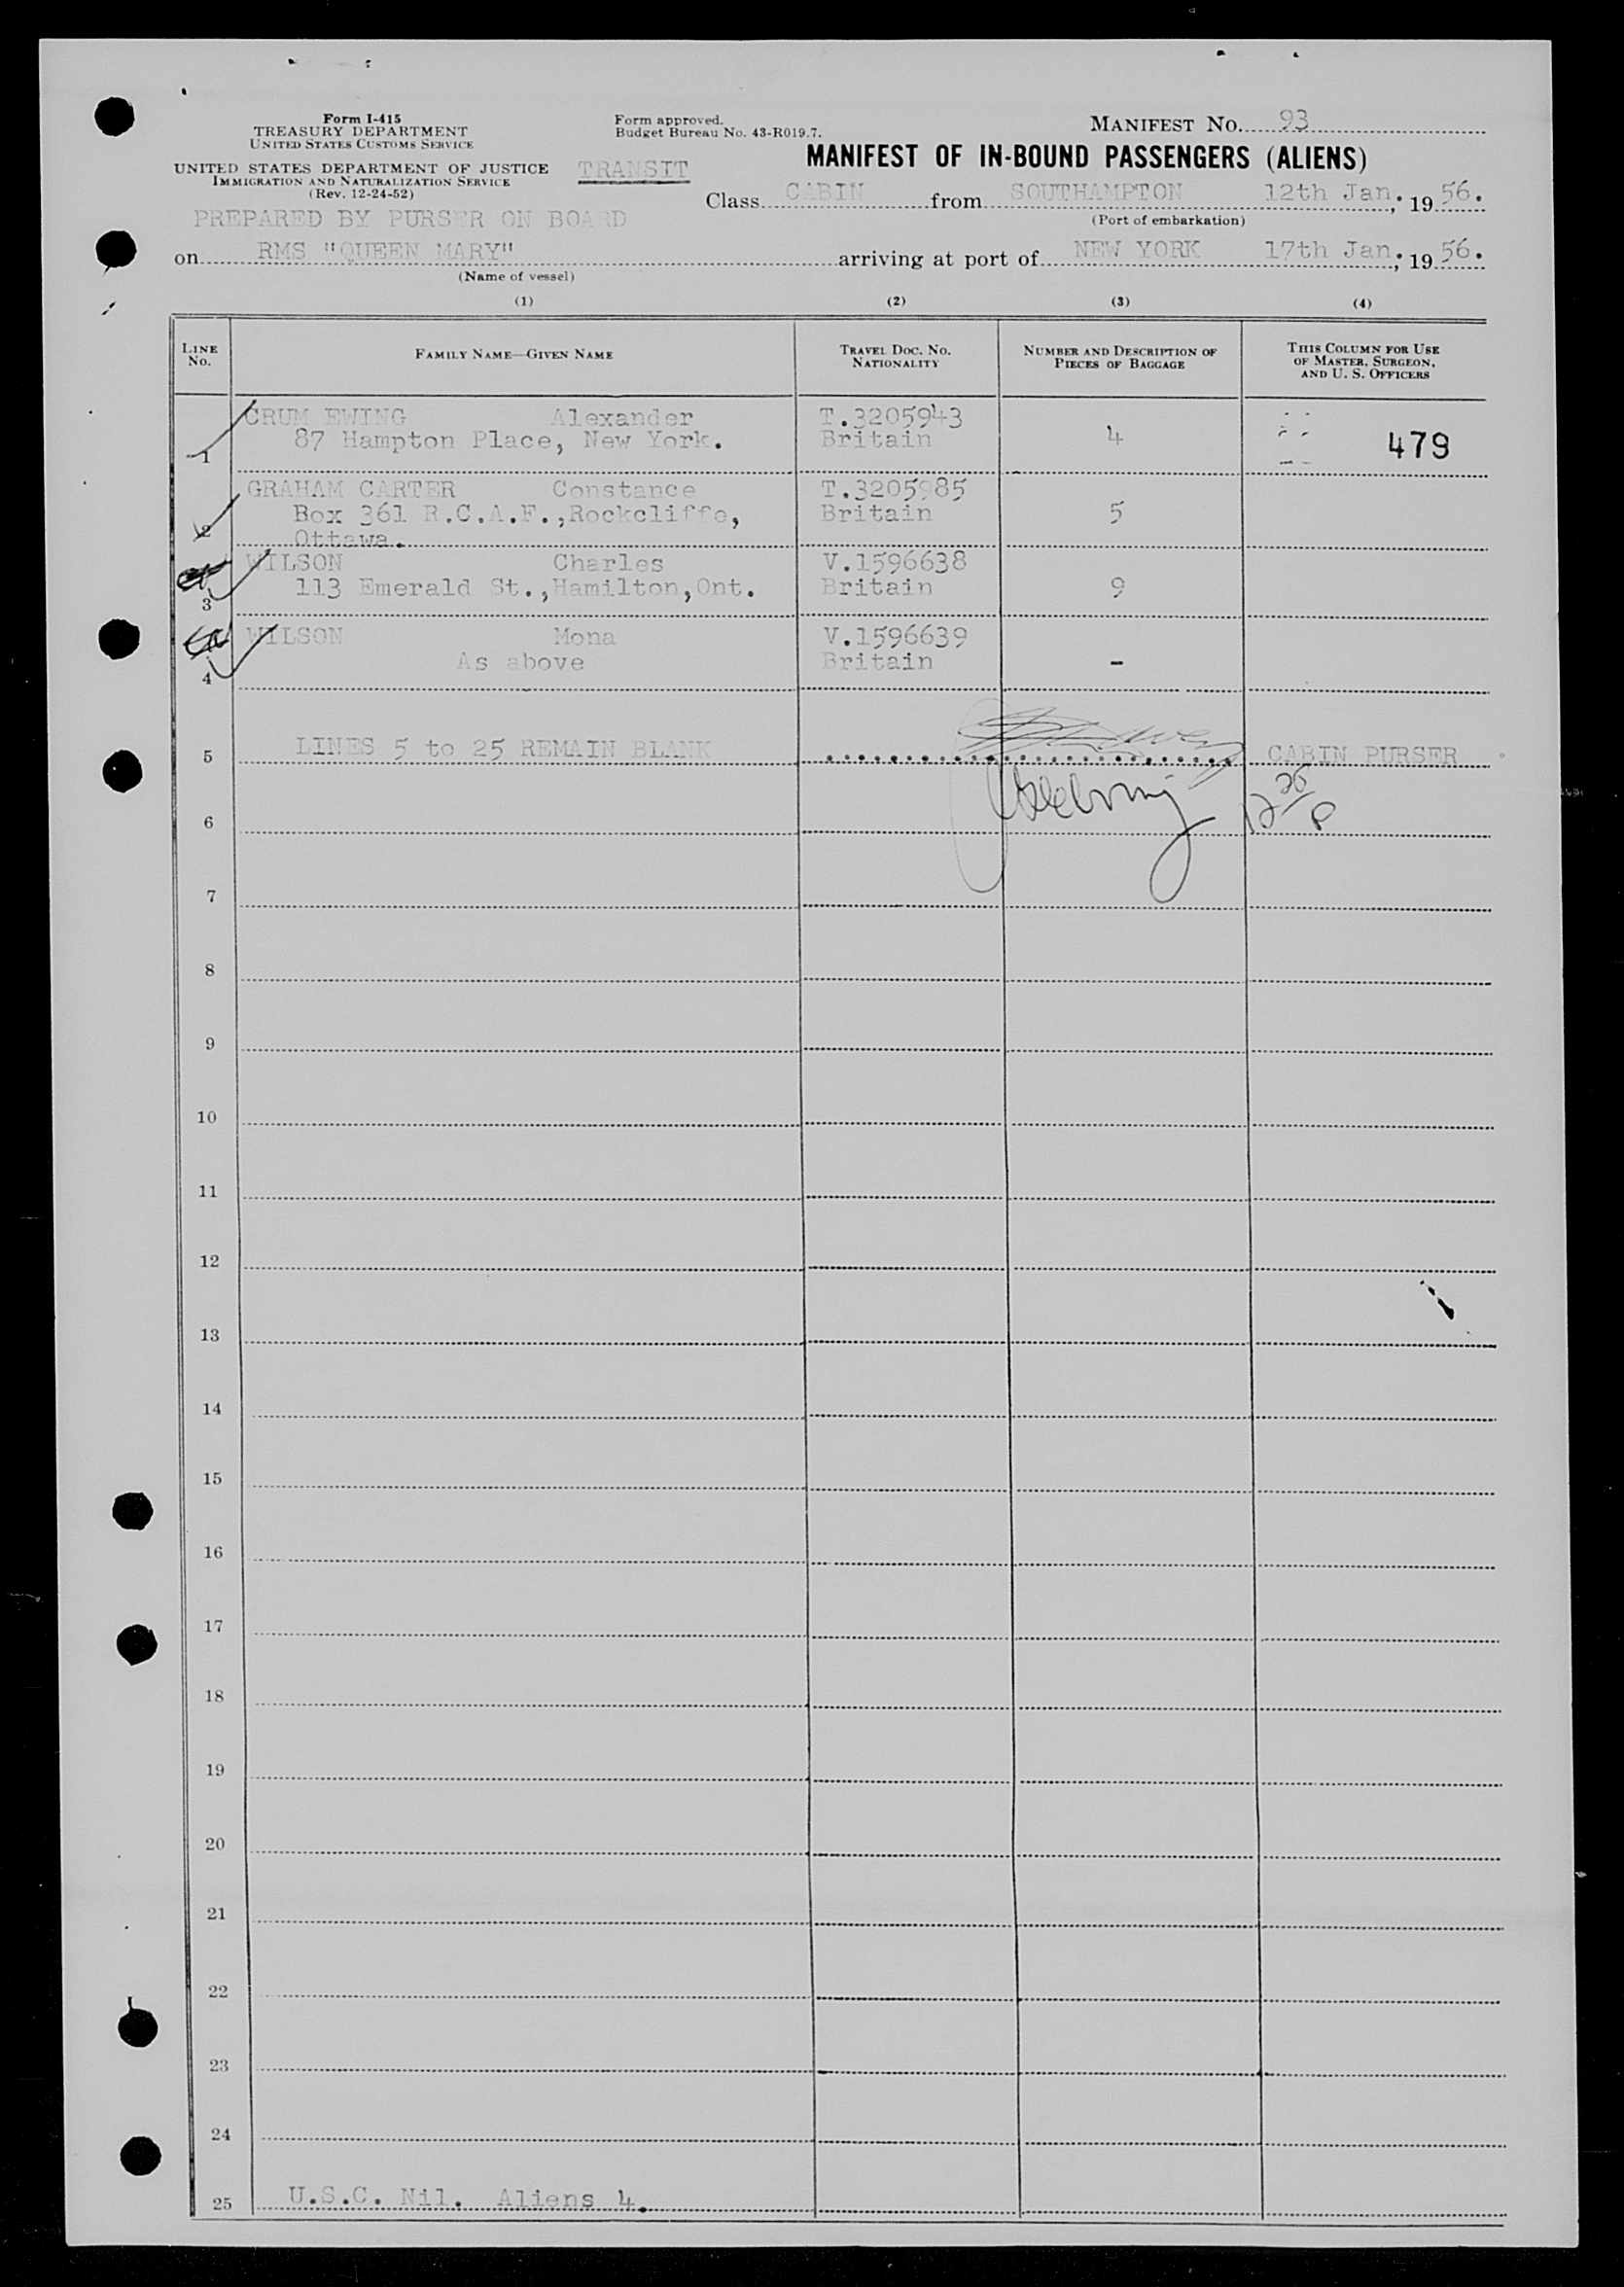 Form I-415
TREASURY DEPARTMENT
UNITED STATES CUSTOMS SERVICE
UNITED STATES DEPARTMENT OF JUSTICE
IMMIGRATION AND NATURALIZATION SERVICE
(Rev. 12-24-52)
Form approved.
Budget Bureau No. 43-R019.7.
TRANSIT
MANIFEST NO. 93
MANIFEST OF IN-BOUND PASSENGERS (ALIENS)
Class CABIN from SOUTHAMPTON 12th Jan., 1956.
(Port of embarkation)
PREPARED BY PURSER ON BOARD
on RMS "QUEEN MARY" arriving at port of NEW YORK 17th Jan., 1956.
(Name of vessel)
(1) (2) (3) (4)
LINE NO. FAMILY NAME—GIVEN NAME TRAVEL DOC. NO. NATIONALITY NUMBER AND DESCRIPTION OF PIECES OF BAGGAGE THIS COLUMN FOR USE OF MASTER, SURGEON, AND U. S. OFFICERS
CRUM EWING Alexander T.3205943
1 87 Hampton Place, New York. Britain 4 479
GRAHAM CARTER Constance T.3205985
2 Box 361 R.C.A.F.,Rockcliffe, Britain 5
Ottawa.
WILSON Charles V.1596638
3 113 Emerald St.,Hamilton,Ont. Britain 9
WILSON Mona V.1596639
4 As above Britain -
5 LINES 5 to 25 REMAIN BLANK CABIN PURSER
6
7
8
9
10
11
12
13
14
15
16
17
18
19
20
21
22
23
24
25 U.S.C. Nil. Aliens 4.